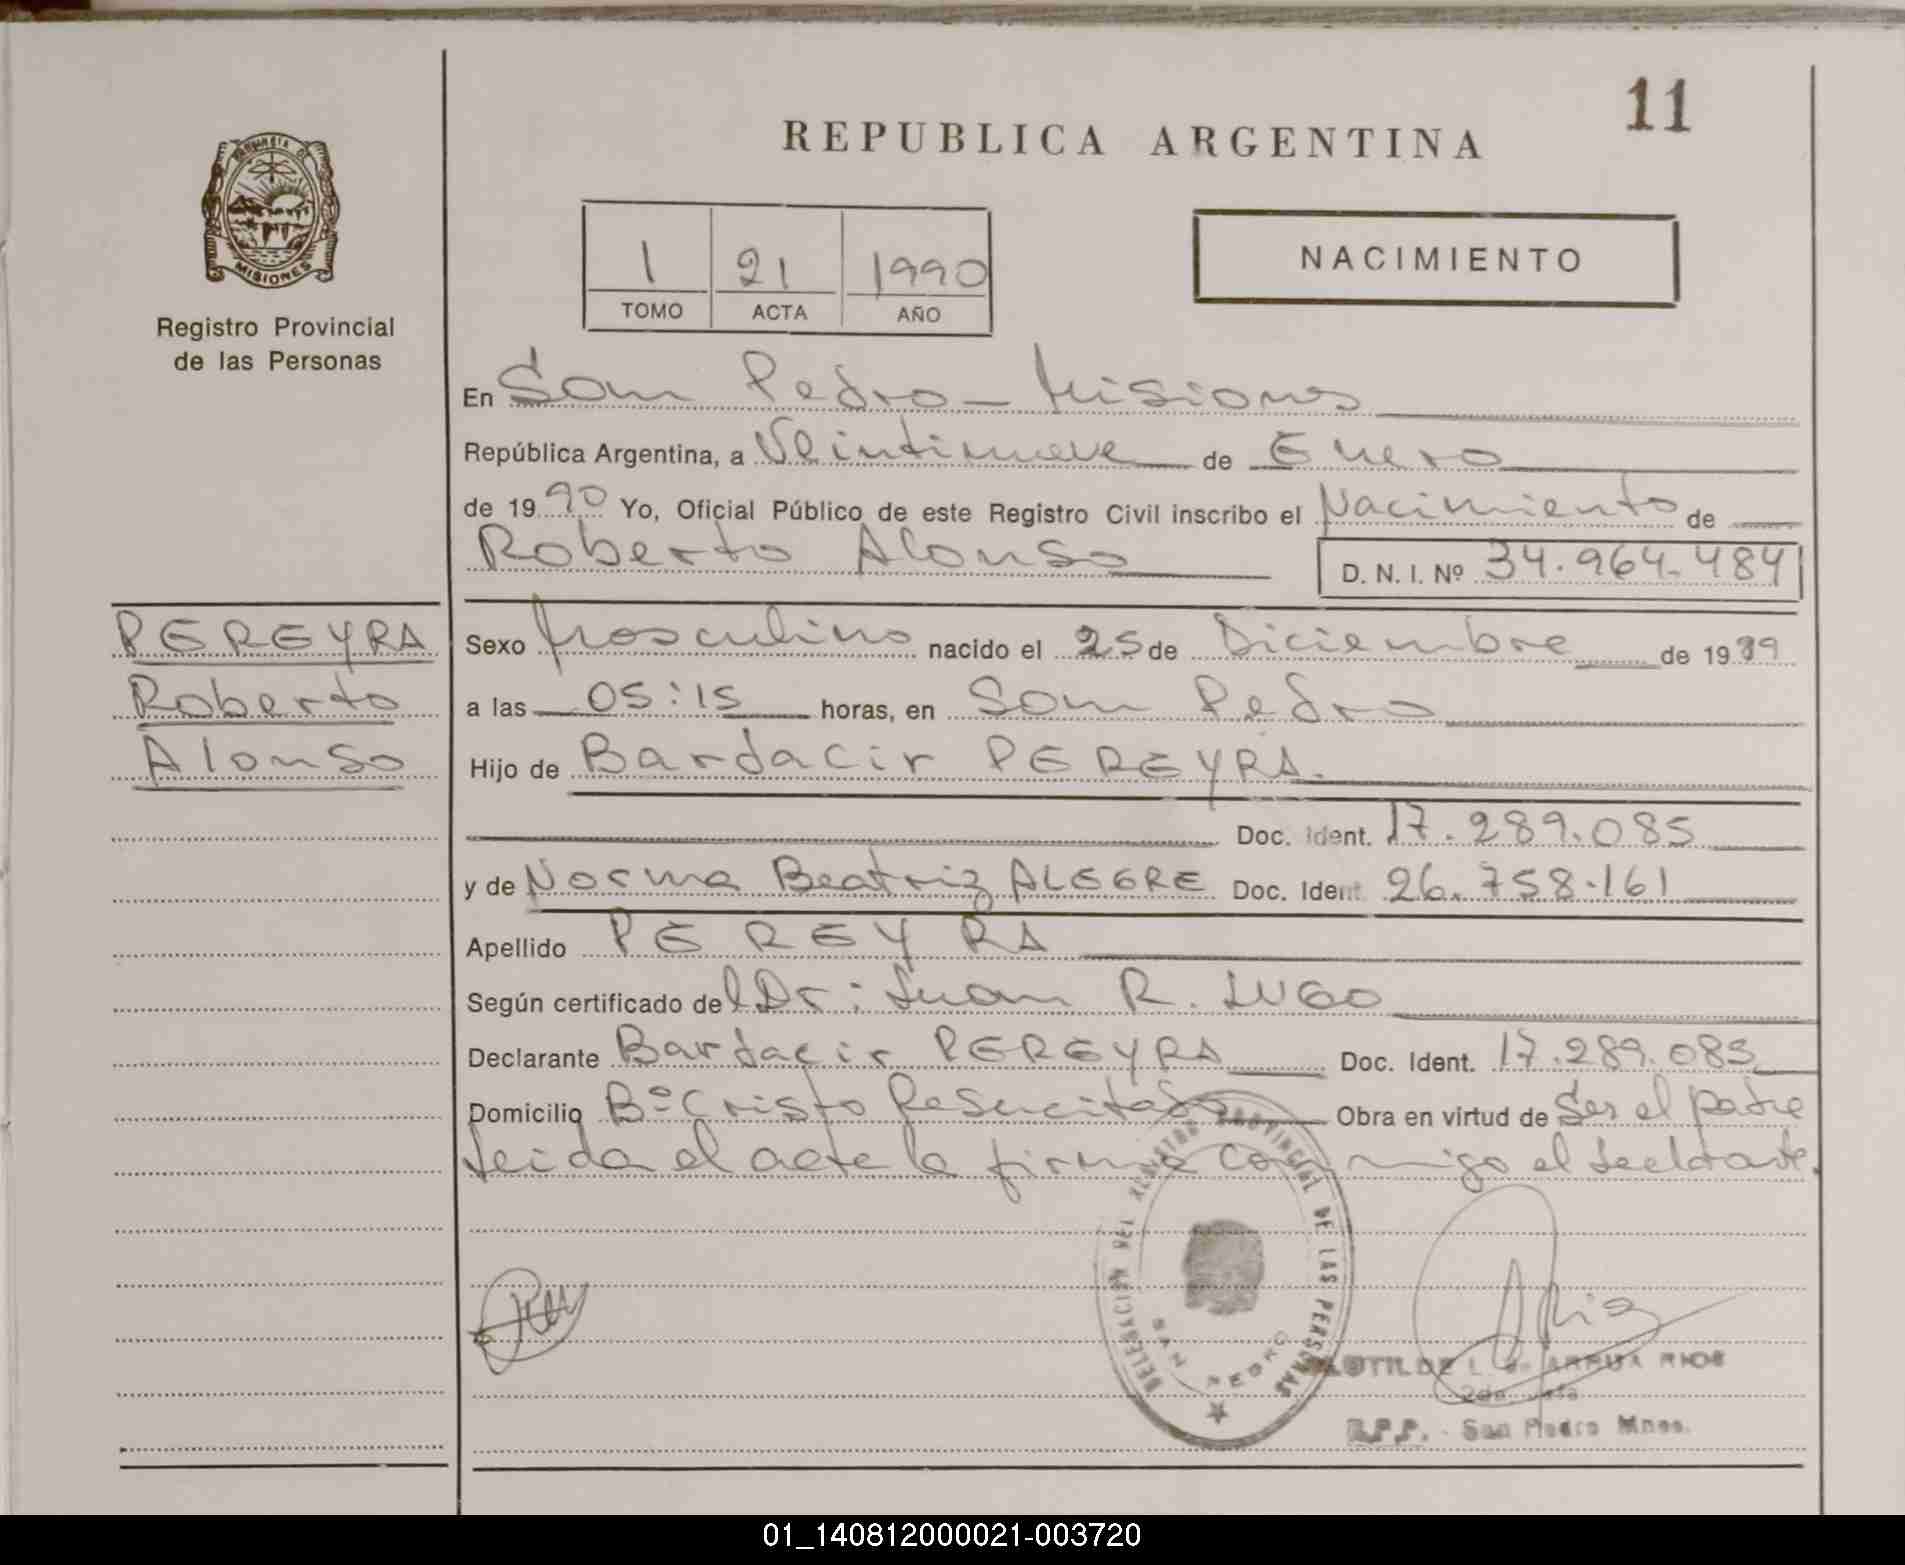 11
REPUBLICA ARGENTINA
PROVINCIA DE
MISIONES
Registro Provincial
de las Personas
1 21 1990
TOMO ACTA AÑO
NACIMIENTO
En San Pedro - Misiones
República Argentina, a Veintinueve de Enero
de 1990 Yo, Oficial Público de este Registro Civil inscribo el Nacimiento de
Roberto Alonso D. N. I. Nº 34.964.484
PEREYRA
Roberto
Alonso
Sexo Masculino nacido el 25 de Diciembre de 1989
a las 05:15 horas, en San Pedro
Hijo de Bardacir PEREYRA.
Doc. Ident. 17.289.085
y de Norma Beatriz ALEGRE Doc. Ident. 26.758.161
Apellido PEREYRA
Según certificado del Dr: Juan R. LUGO
Declarante Bardacir PEREYRA Doc. Ident. 17.289.085
Domicilio Bº Cristo Resucitado Obra en virtud de Ser el padre
Leida el acta la firma conmigo el declarante.
DELEGACION DEL REGISTRO PROVINCIAL DE LAS PERSONAS
SAN PEDRO
CLOTILDE L. de ARRUA RIOS
R.P.P. - San Pedro Mnes.
01_140812000021-003720